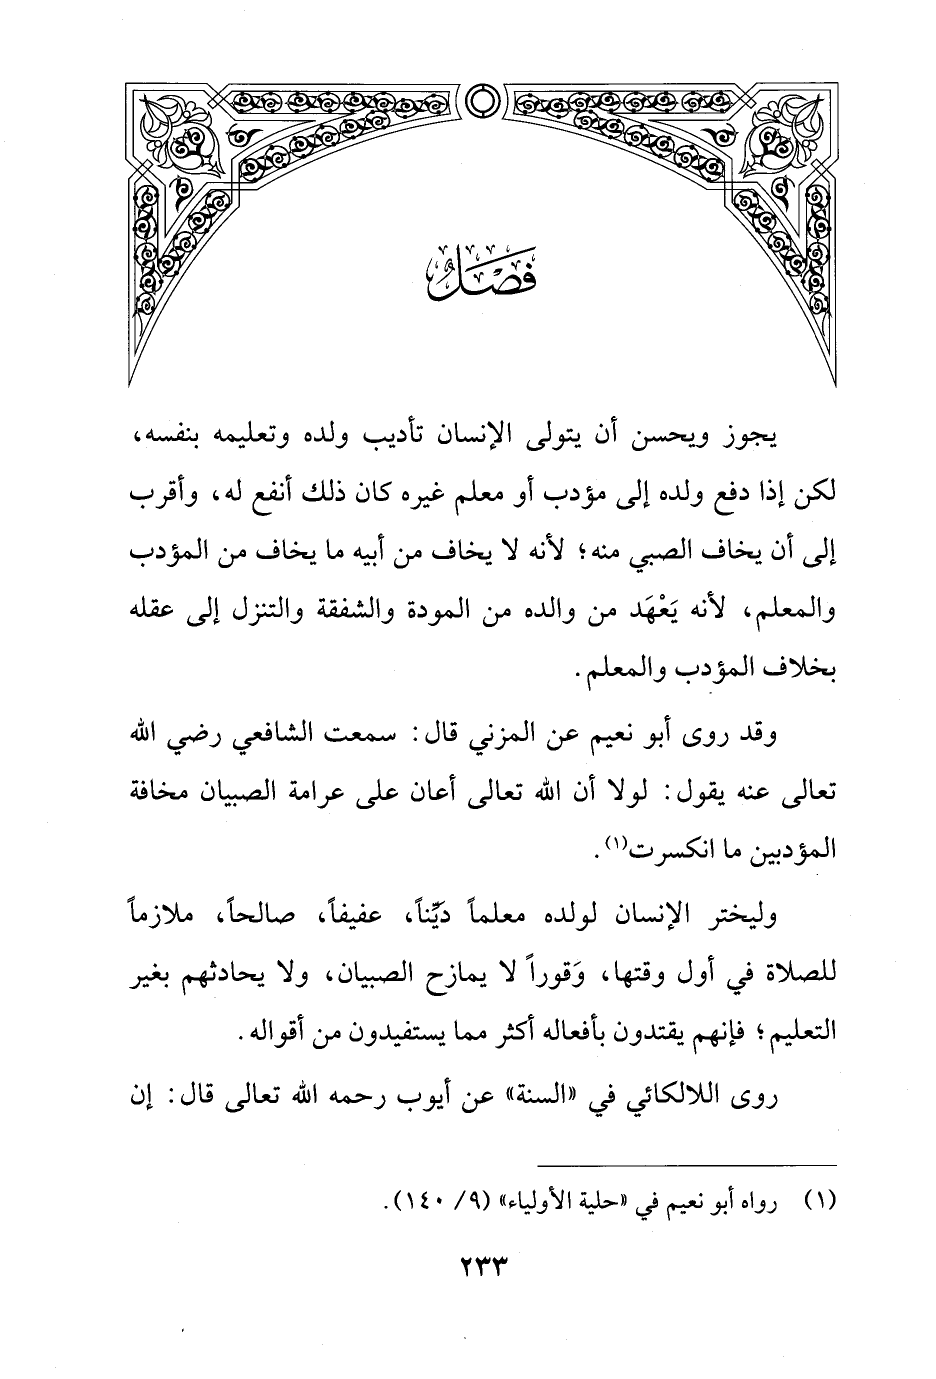 فَصْلٌ
يجوز ويحسن أن يتولى الإنسان تأديب ولده وتعليمه بنفسه،
لكن إذا دفع ولده إلى مؤدب أو معلم غيره كان ذلك أنفع له، وأقرب
إلى أن يخاف الصبي منه؛ لأنه لا يخاف من أبيه ما يخاف من المؤدب
والمعلم، لأنه يَعْهَد من والده من المودة والشفقة والتنزل إلى عقله
بخلاف المؤدب والمعلم.
وقد روى أبو نعيم عن المزني قال: سمعت الشافعي رضي الله
تعالى عنه يقول: لولا أن الله تعالى أعان على عرامة الصبيان مخافة
المؤدبين ما انكسرت(١).
وليختر الإنسان لولده معلماً ديِّناً، عفيفاً، صالحاً، ملازماً
للصلاة في أول وقتها، وَقوراً لا يمازح الصبيان، ولا يحادثهم بغير
التعليم؛ فإنهم يقتدون بأفعاله أكثر مما يستفيدون من أقواله.
روى اللالكائي في «السنة» عن أيوب رحمه الله تعالى قال: إن
(١) رواه أبو نعيم في «حلية الأولياء» (٩/ ١٤٠).
٢٣٣